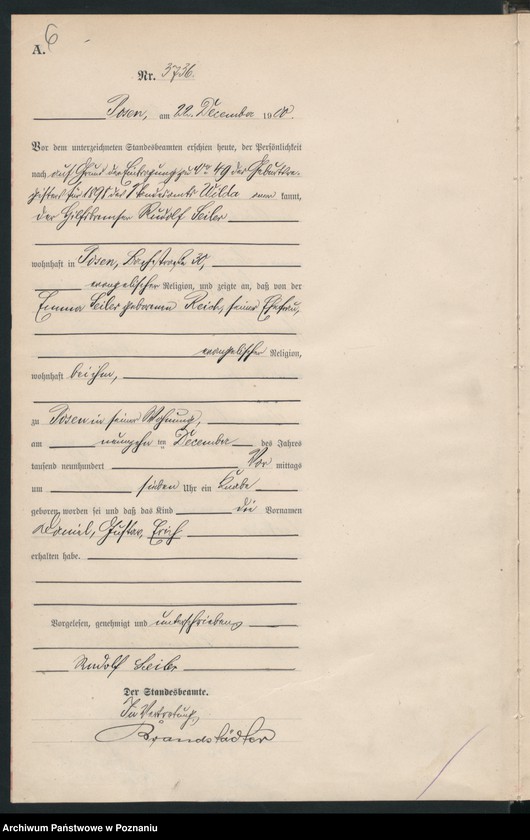 6
A.
Nr. 3736.
Posen, am 22. December 1900.
Vor dem unterzeichneten Standesbeamten erschien heute, der Persönlichkeit
nach auf Grund der Eintragung zu No 49 des Geburtsre-
gisters für 1898 des Standesamts Wilda kannt,
der Hilfsbremser Rudolf Seiler
wohnhaft in Posen, 30,
evangelischer Religion, und zeigte an, daß von der
Emma Seiler geborenen Reich, seiner Ehefrau,
evangelischer Religion,
wohnhaft bei ihm,
zu Posen in seiner Wohnung,
am neunzehn ten December des Jahres
tausend neunhundert Vor mittags
um sieben Uhr ein Knabe
geboren worden sei und daß das Kind die Vornamen
Daniel, Gustav, Erich
erhalten habe.
Vorgelesen, genehmigt und unterschrieben
Rudolf Seiler
Der Standesbeamte.
In Vertretung
Brandstädter
Archiwum Państwowe w Poznaniu